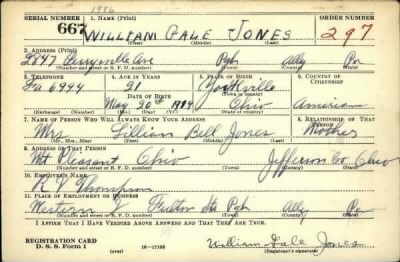 1986
SERIAL NUMBER 1. NAME (Print) ORDER NUMBER
667 WILLIAM GALE JONES 297
(First) (Middle) (Last)
2. ADDRESS (Print)
2847 Perrysville Ave Pgh Ally Pa
(Number and street or R. F. D. number) (Town) (County) (State)
3. TELEPHONE 4. AGE IN YEARS 5. PLACE OF BIRTH 6. COUNTRY OF CITIZENSHIP
Fa 6994 21 Yorkville
DATE OF BIRTH (Town or county)
May 20th 1919 Ohio American
(Exchange) (Number) (Mo.) (Day) (Yr.) (State or country)
7. NAME OF PERSON WHO WILL ALWAYS KNOW YOUR ADDRESS 8. RELATIONSHIP OF THAT PERSON
Mrs Lillian Bell Jones Mother
(Mr., Mrs., Miss) (First) (Middle) (Last)
9. ADDRESS OF THAT PERSON
Mt Pleasant Ohio Jefferson Co Ohio
(Number and street or R. F. D. number) (Town) (County) (State)
10. EMPLOYER'S NAME
Thompson
11. PLACE OF EMPLOYMENT OR BUSINESS
Western Fulton Sts Pgh Ally Pa
(Number and street or R. F. D. number) (Town) (County) (State)
I AFFIRM THAT I HAVE VERIFIED ABOVE ANSWERS AND THAT THEY ARE TRUE.
REGISTRATION CARD
D. S. S. Form 1 (over) 16—17105 William Gale Jones
(Registrant's signature)